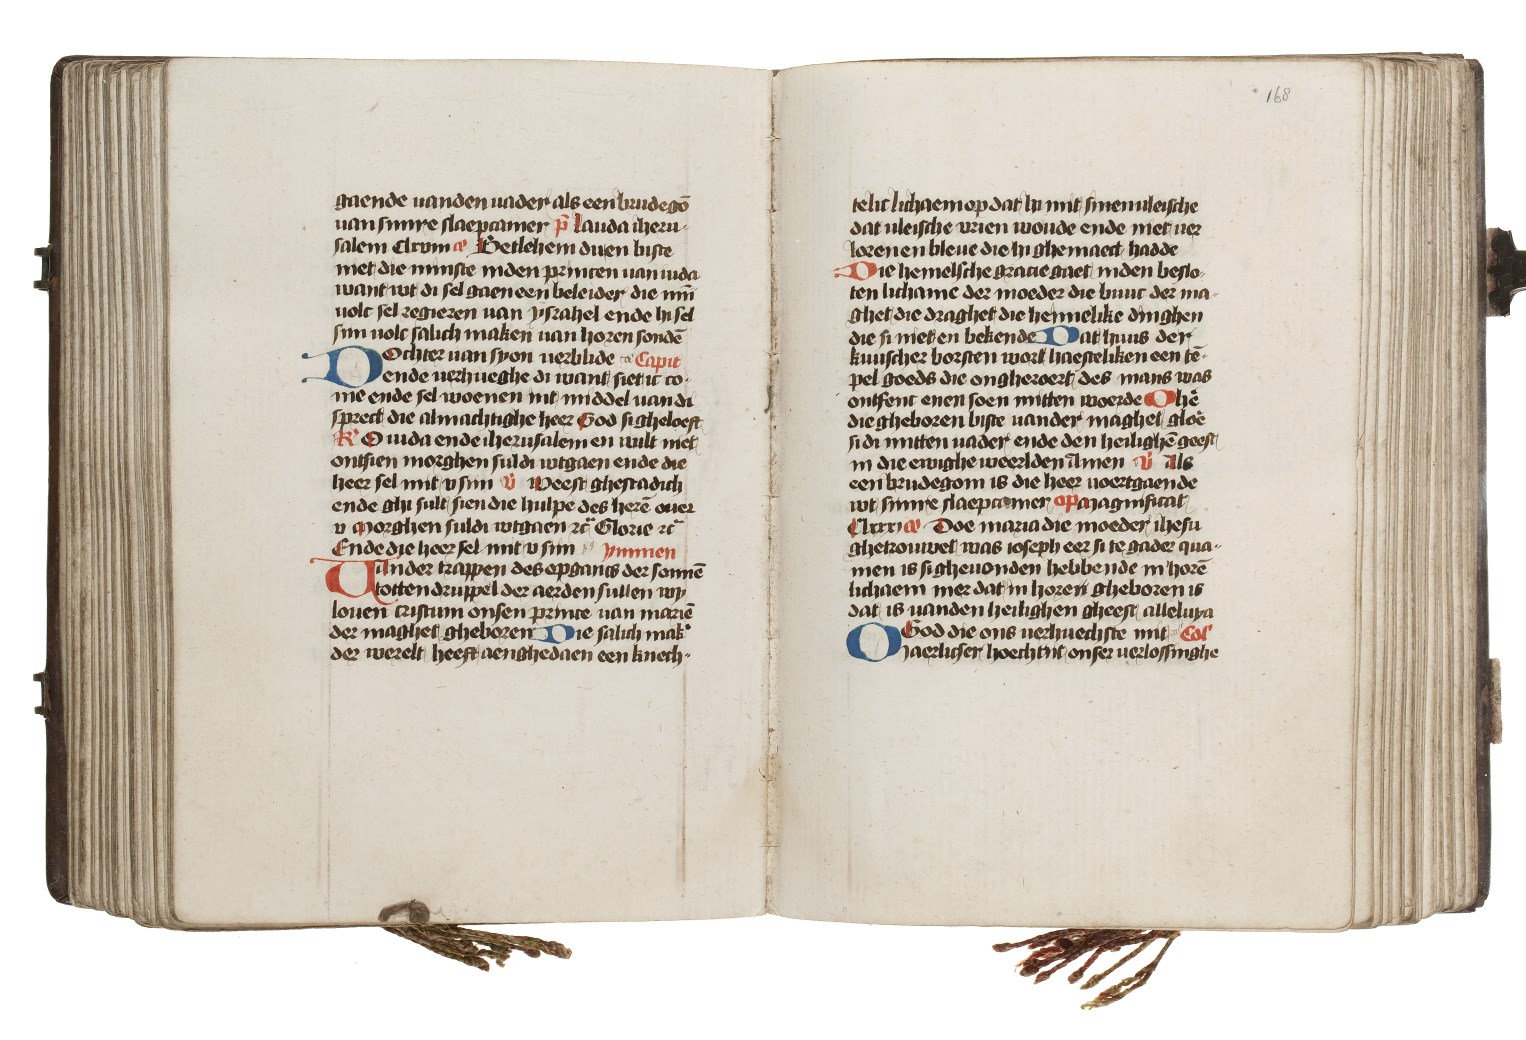 gaende vanden vader als een brudegō
van sinre slaepcamer p̄ Lauda iheru-
salem Clxvii ca Betlehem du en biste
niet die minste inden princen van iuda
want wt di sel gaen een beleider die mī
volc sel regieren van ysrahel ende hi sel
sijn volc salich maken van horen sondē
Dochter van syon verblide Capit
ende verhueghe di want siet ic co-
me ende sel woenen int middel van di
sprect die almachtighe heer God si gheloeft
R O iuda ende iherusalem en wilt niet
ontsien morghen suldi wtgaen ende die
heer sel mit v sijn V Weest ghestadich
ende ghi sult sien die hulpe des herē over
v Morghen suldi wtgaen rc̄ Glorie rc̄
Ende die heer sel mit v sijn ymmen
Vander trappen des opgancs der sonnē
totten druppel der aerden sullen wy
loven cristum onsen prince van mariē
der maghet gheboren Die salich mak'
der werelt heeft aenghedaen een knech-
168
telic lichaem op dat hi mit sinen vleische
dat vleische vrien woude ende niet ver
loren en bleve die hi ghemaect hadde
Die hemelsche gracie gaet inden beslo-
ten lichame der moeder die buuc der ma-
ghet die draghet die hemelike dinghen
die si niet en bekende Dat huus der
kuuscher borsten wort haesteliken een tē-
pel goeds die ongheroert des mans was
ontfenc enen soen mitten woerde O hē
die gheboren biste vander maghet glo'e
si di mitten vader ende den heilighē geest
in die ewighe weerlden Amen V Als
een brudegom is die heer voertgaende
wt sinre slaepcamer ap Magnificat
Clxxxi ca Doe maria die moeder ihesu
ghetrouwet was ioseph eer si te gader qua-
men is si ghevonden hebbende in horē
lichaem mer dat in horen gheboren is
dat is vanden heilighen gheest alleluya
O God die ons verhuechste mit Col'
iaerlicser hoechtijt onser verlossinghe